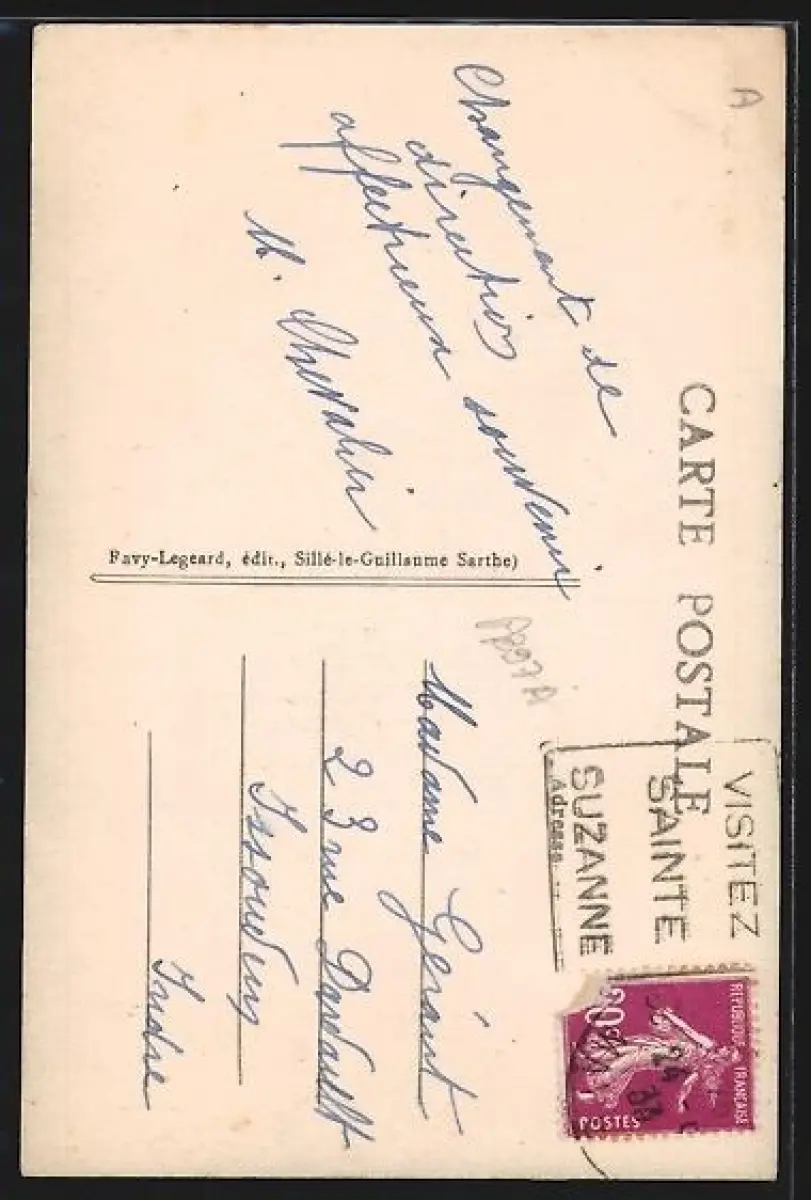 A
CARTE POSTALE
Changement de
direction
affectueux souvenir
M. Chevalier
Favy-Legeard, édit., Sillé-le-Guillaume Sarthe)
VISITEZ
SAINTE
SUZANNE
Adresse
REPUBLIQUE FRANÇAISE
20c
POSTES
24
33
Madame Gérant
23 rue Dardault
Issoudun
Indre